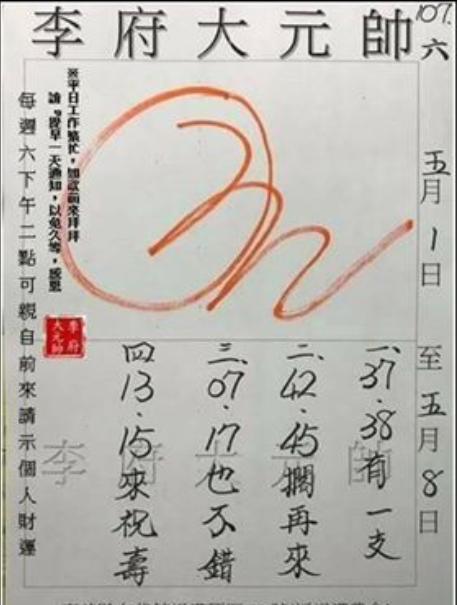 李府大元帥
107.六
五月1日至五月8日
一、37.38有一支
二、42.45擱再來
三、07.17也不錯
四、13.15來祝壽
李府大元帥
※平日工作繁忙，如欲前來拜拜
請『提早一天通知，以免久等，感恩
李府
大元帥
每週六下午二點可親自前來請示個人財運